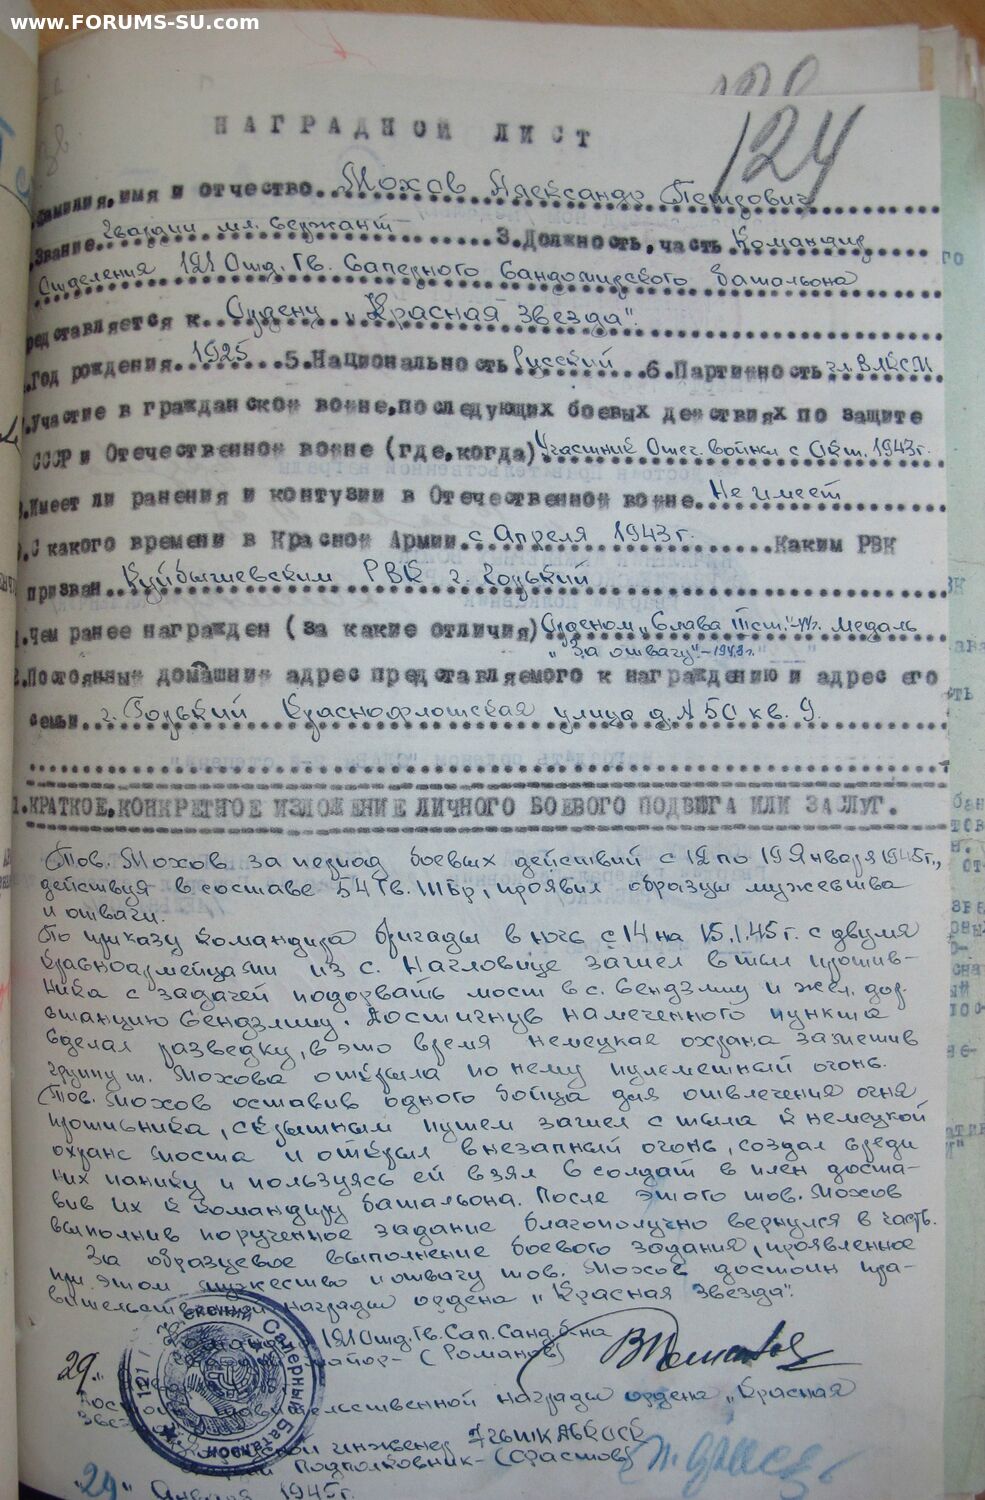 www.FORUMS-SU.com
124
НАГРАДНОЙ ЛИСТ
Фамилия, имя и отчество Мохов Александр Петрович
Звание Гвардии мл. сержант 3. Должность, часть Командир
Отделения 121 Отд. Гв. Саперного Сандомирского батальона
представляется к Ордену "Красная Звезда".
Год рождения 1925 5. Национальность Русский 6. Партийность чл. ВЛКСМ
Участие в гражданской войне, последующих боевых действиях по защите
СССР и Отечественной войне (где, когда) Участник Отеч. войны с Окт. 1943г.
8. Имеет ли ранения и контузии в Отечественной войне Не имеет
С какого времени в Красной Армии с Апреля 1943г. Каким РВК
призван Куйбышевским РВК г. Горький
Чем ранее награжден (за какие отличия) Орденом "Слава III ст." медаль
"За отвагу"
2. Постоянный домашний адрес представляемого к награждению и адрес его
семьи г. Горький Краснофлотская улица д. № 50 кв. 9.
1. КРАТКОЕ, КОНКРЕТНОЕ ИЗЛОЖЕНИЕ ЛИЧНОГО БОЕВОГО ПОДВИГА ИЛИ ЗАСЛУГ.
Тов. Мохов за период боевых действий с 12 по 19 Января 1945г.,
действуя в составе 54 Гв. ТБр, проявил образцы мужества
и отваги.
По приказу командира бригады в ночь с 14 на 15.1.45г. с двумя
красноармейцами из с. Нагловице зашел в тыл против-
ника с задачей подорвать мост в с. Сендзлиц и жел. дор.
станцию Сендзлиц. Достигнув намеченного пункта
сделал разведку, в это время немецкая охрана заметив
группу т. Мохова открыла по нему пулеметный огонь.
Тов. Мохов оставив одного бойца для отвлечения огня
противника, скрытным путем зашел с тыла к немецкой
охране моста и открыл внезапный огонь, создал среди
них панику и пользуясь ей взял 6 солдат в плен доста-
вив их к командиру батальона. После этого тов. Мохов
выполнив порученное задание благополучно вернулся в часть.
За образцовое выполнение боевого задания, проявленное
при этом мужество и отвагу тов. Мохов достоин пра-
вительственной награды ордена "Красная Звезда".
121 Отд. Гв. Сап. Санд. б-на
майор - (Романов)
29
121 Саперный Батальон
Достоин правительственной награды ордена "Красная
Звезда"
инженер 7 Гв ТКАВКОСК
Подполковник - (Фастов)
"29" Января 1945г.